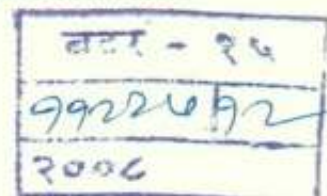 बदर - १५
११२२७ १२
२००८